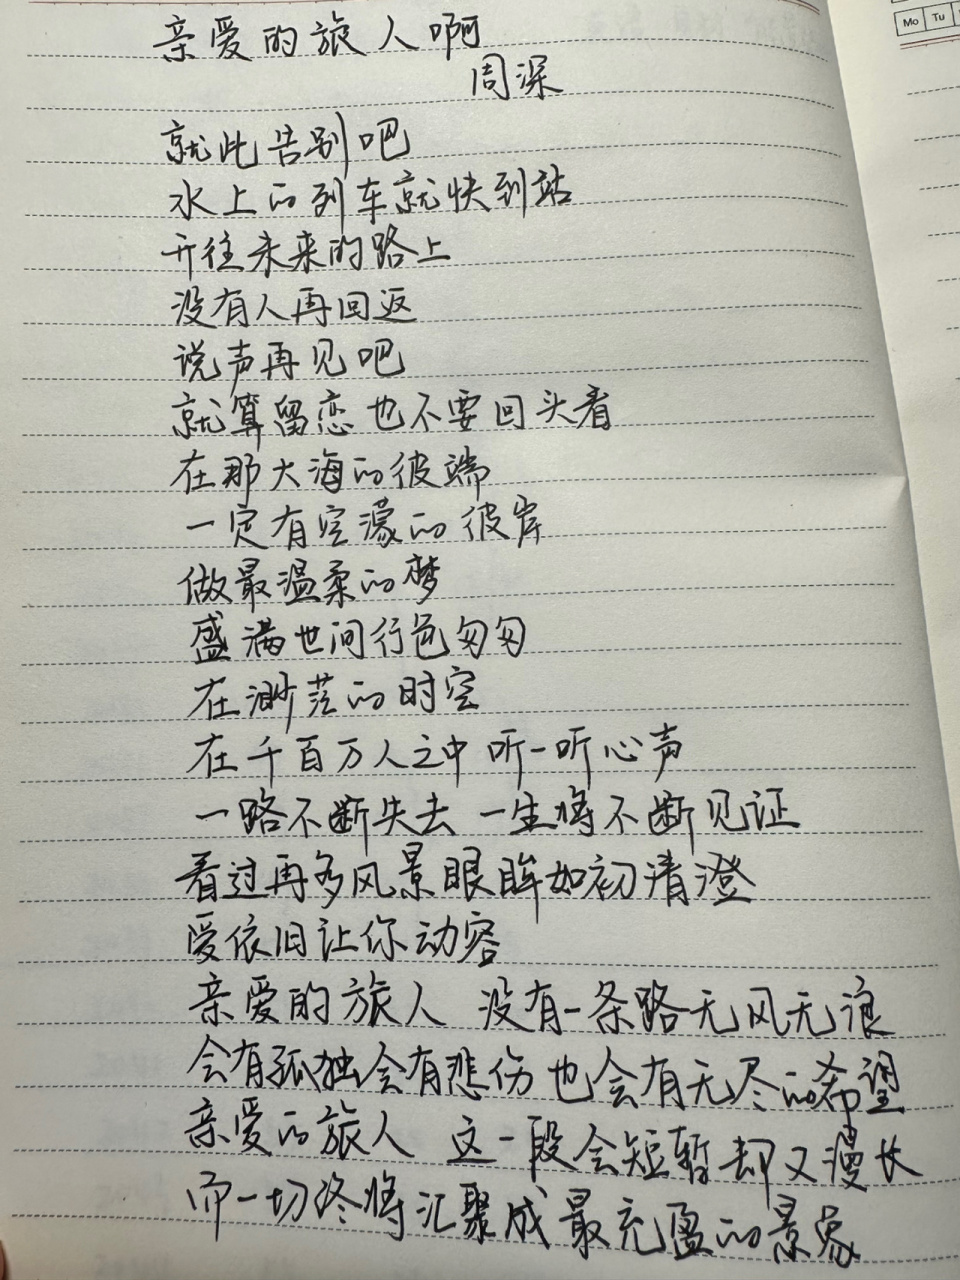 亲爱的旅人啊
周深
Mo Tu
就此告别吧
水上的列车就快到站
开往未来的路上
没有人再回返
说声再见吧
就算留恋也不要回头看
在那大海的彼端
一定有空濛的彼岸
做最温柔的梦
盛满世间行色匆匆
在渺茫的时空
在千百万人之中 听一听心声
一路不断失去 一生将不断见证
看过再多风景眼眸如初清澄
爱依旧让你动容
亲爱的旅人 没有一条路无风无浪
会有孤独会有悲伤 也会有无尽的希望
亲爱的旅人 这一段会短暂却又漫长
而一切终将汇聚成最充盈的景象